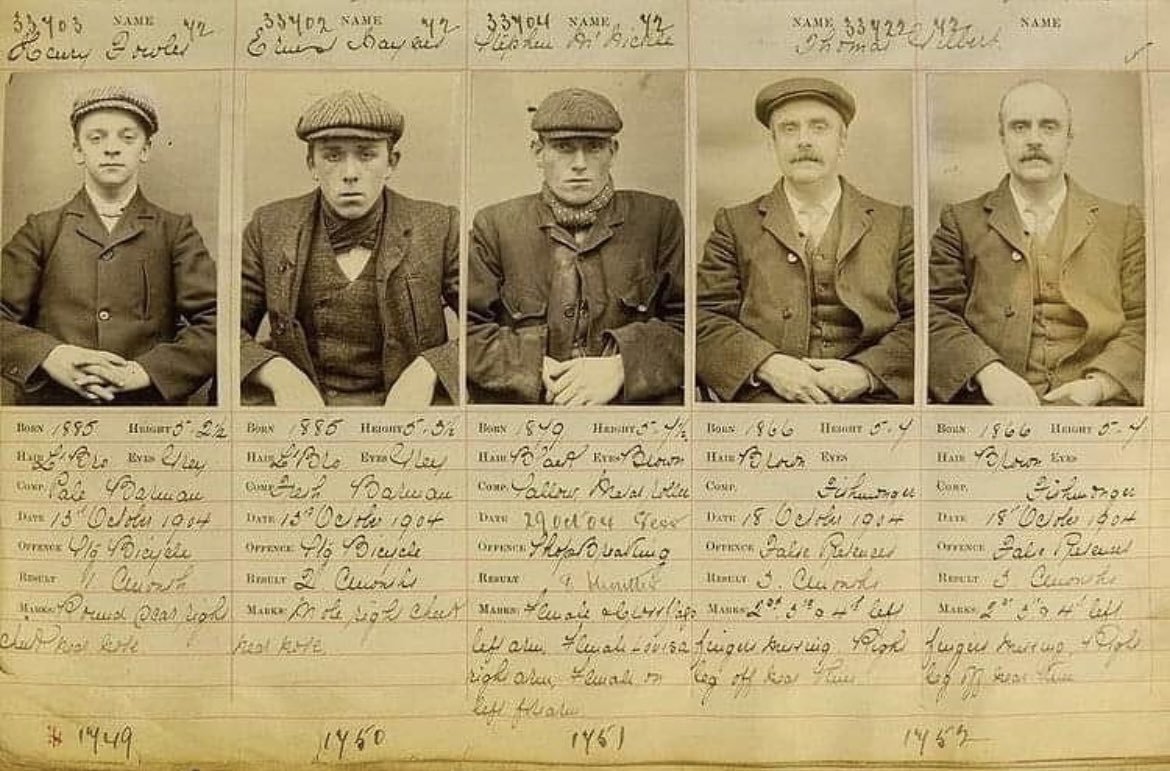 33703 NAME 72
Henry Fowler
33702 NAME 72
Ernest Haynes
33704 NAME 72
Stephen McNickle
NAME 33722 72 NAME
Thomas Gilbert
BORN 1885 HEIGHT 5-2½
HAIR L'Bro EYES Grey
COMP. Pale Barman
DATE 13th October 1904
OFFENCE Stg Bicycle
RESULT 1 Cmonth
MARKS: Round scar right
cheek near nose
1749
BORN 1885 HEIGHT 5-3½
HAIR L'Bro EYES Grey
COMP. Fresh Barman
DATE 13th October 1904
OFFENCE Stg Bicycle
RESULT 2 Cmonths
MARKS: Mole right cheek
near nose
1750
BORN 1879 HEIGHT 5-7½
HAIR B'ack EYES Brown
COMP. Sallow, Metal roller
DATE 29 Oct 04
OFFENCE Shop Breaking
RESULT
MARKS: Female
left arm, Female Louisa
right arm, Female on
left f'earm
1751
BORN 1866 HEIGHT 5-7
HAIR Brown EYES
COMP. Fishmonger
DATE 18 October 1904
OFFENCE False Pretences
RESULT 3 Cmonths
MARKS: 2nd 3rd & 4th left
fingers missing, Right
leg off near
BORN 1866 HEIGHT 5-7
HAIR Brown EYES
COMP. Fishmonger
DATE 18 October 1904
OFFENCE False Pretences
RESULT 3 Cmonths
MARKS: 2nd 3rd & 4th left
fingers missing, Right
leg off near
1752